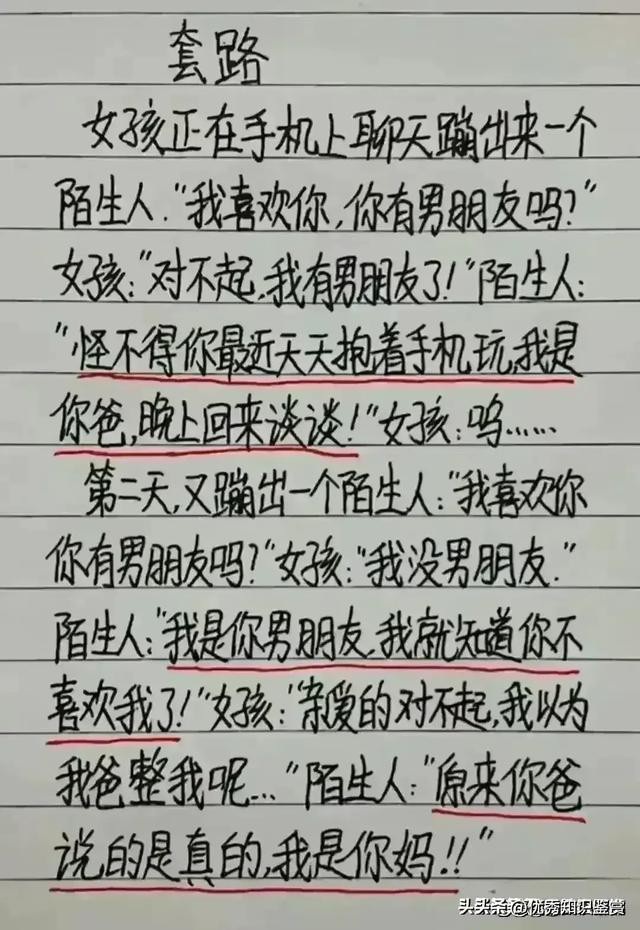 套路
女孩正在手机上聊天蹦出来一个
陌生人."我喜欢你,你有男朋友吗?"
女孩:"对不起,我有男朋友了!"陌生人:
"怪不得你最近天天抱着手机玩,我是
你爸,晚上回来谈谈!"女孩:呜……
第二天,又蹦出一个陌生人:"我喜欢你
你有男朋友吗?"女孩:"我没男朋友."
陌生人:"我是你男朋友,我就知道你不
喜欢我了!"女孩:"亲爱的对不起,我以为
我爸整我呢..."陌生人:"原来你爸
说的是真的,我是你妈!!"